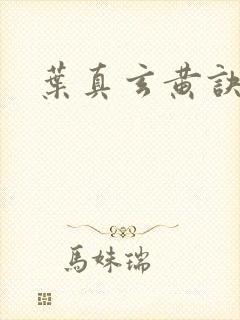 葉真玄黄訣
馬妹瑞